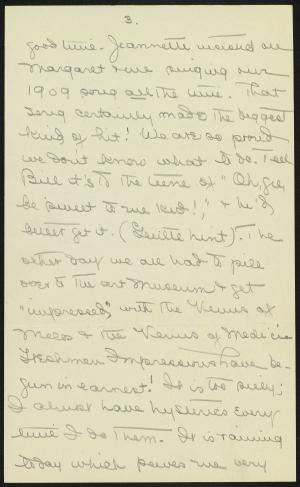 3.
good time. Jeannette moved in
Margaret & me singing our
1909 song all the time. That
song certainly made the biggest
kind of hit! We are so proud
we don't know what to do. Tell
Bill it's to the tune of "Oh, gee,
be sweet to me kid!", & he'd
better get it. (Gentle hint). The
other day we all had to pile
over to the Art Museum & get
"impressed" with the Venus of
Melos & the Venus of Medicis.
Freshman Impressions have be-
gun in earnest! It is too silly;
I almost have hysterics every
time I do them. It is raining
today which peeves me very